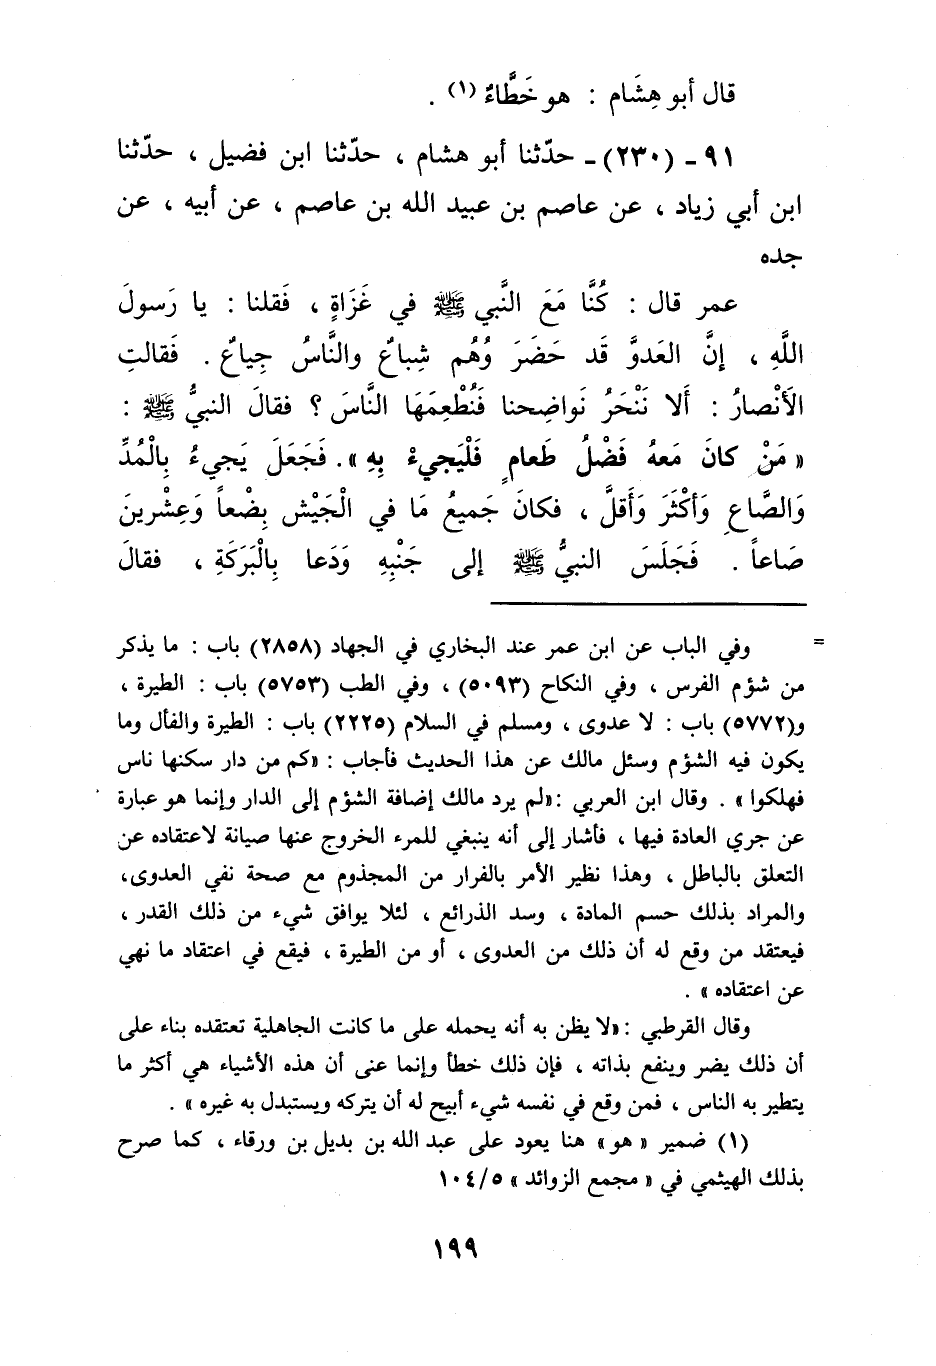 قال أبو هِشَام : هو خَطَّاءٌ (١) .
٩١ - (٢٣٠) - حدّثنا أبو هشام ، حدّثنا ابن فضيل ، حدّثنا
ابن أبي زياد ، عن عاصم بن عبيد الله بن عاصم ، عن أبيه ، عن
جده
عمر قال : كُنَّا مَعَ النَّبي ﷺ في غَزَاةٍ ، فَقلنا : يا رَسولَ
اللَّهِ ، إنَّ العَدوَّ قَد حَضَرَ وُهُم شِباعٌ والنَّاسُ جِياعٌ . فَقالتِ
الأَنْصارُ : أَلا نَنْحَرُ نَواضِحنا فَنُطْعِمَهَا النَّاسَ ؟ فقالَ النبيُّ ﷺ :
« مَنْ كانَ مَعهُ فَضْلُ طَعامٍ فَلْيَجيءْ بِهِ » . فَجَعَلَ يَجيءُ بِالْمُدِّ
وَالصَّاعِ وَأكْثَرَ وَأَقلَّ ، فكانَ جَميعُ مَا في الْجَيْش بِضْعاً وَعِشْرينَ
صَاعاً . فَجَلَسَ النبيُّ ﷺ إلى جَنْبِهِ وَدَعا بِالْبَرَكَةِ ، فقالَ
= وفي الباب عن ابن عمر عند البخاري في الجهاد (٢٨٥٨) باب : ما يذكر
من شؤم الفرس ، وفي النكاح (٥٠٩٣) ، وفي الطب (٥٧٥٣) باب : الطيرة ،
و(٥٧٧٢) باب : لا عدوى ، ومسلم في السلام (٢٢٢٥) باب : الطيرة والفأل وما
يكون فيه الشؤم وسئل مالك عن هذا الحديث فأجاب : «كم من دار سكنها ناس
فهلكوا » . وقال ابن العربي :«لم يرد مالك إضافة الشؤم إلى الدار وإنما هو عبارة
عن جري العادة فيها ، فأشار إلى أنه ينبغي للمرء الخروج عنها صيانة لاعتقاده عن
التعلق بالباطل ، وهذا نظير الأمر بالفرار من المجذوم مع صحة نفي العدوى،
والمراد بذلك حسم المادة ، وسد الذرائع ، لئلا يوافق شيء من ذلك القدر ،
فيعتقد من وقع له أن ذلك من العدوى ، أو من الطيرة ، فيقع في اعتقاد ما نهي
عن اعتقاده » .
وقال القرطبي :«لا يظن به أنه يحمله على ما كانت الجاهلية تعتقده بناء على
أن ذلك يضر وينفع بذاته ، فإن ذلك خطأ وإنما عنى أن هذه الأشياء هي أكثر ما
يتطير به الناس ، فمن وقع في نفسه شيء أبيح له أن يتركه ويستبدل به غيره » .
(١) ضمير « هو» هنا يعود على عبد الله بن بديل بن ورقاء ، كما صرح
بذلك الهيثمي في « مجمع الزوائد » ١٠٤/٥
١٩٩